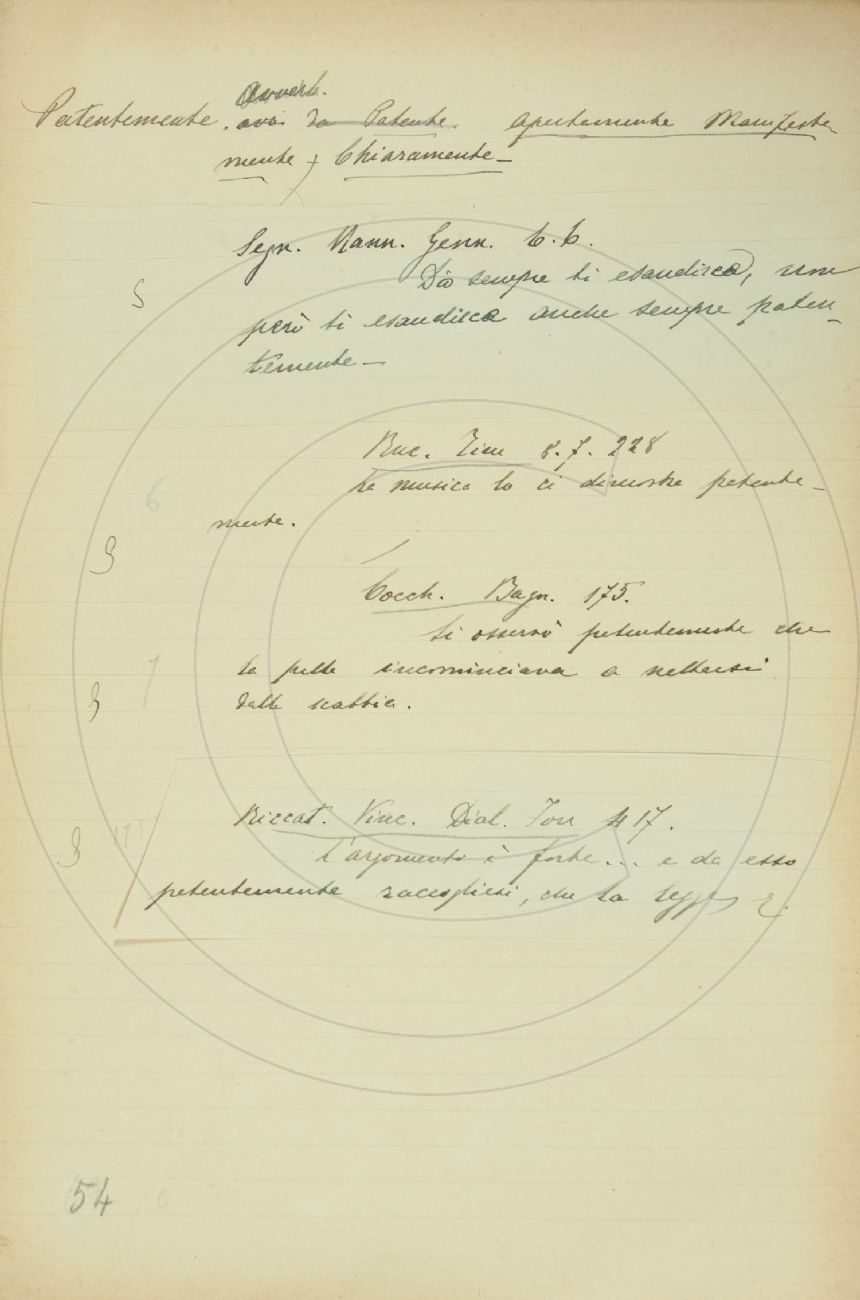 Avverb.
Patentemente. avv. da Patente. Apertamente Manifesta-
mente, Chiaramente_
Segn. Mann. Genn. 6. 6.
Dio sempre ti esaudisca, non
5
però ti esaudisca anche sempre paten-
temente_
Buc. Tim 8. 7. 228
6
La musica lo ci dimostra patente-
mente.
3
Cocch. Bagn. 175.
Si osservò patentemente che
la pelle incominciava a nettarsi
7
3
dalla scabbia.
Riccat. Vinc. Dial. Forz 417.
3
L'argomento è forte... e da esso
patentemente raccogliesi, che la legge
54